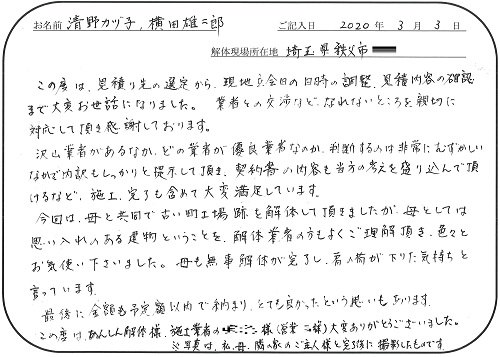 お名前 清野カヅ子, 横田雄二郎 ご記入日 2020年 3月 3日
解体現場所在地 埼玉県秩父市
この度は、見積り先の選定から、現地立会日の日時の調整、見積内容の確認
まで大変お世話になりました。業者との交渉など、なれないところを親切に
対応して頂き感謝しております。
沢山業者があるなか、どの業者が優良業者なのか、判断するのは非常にむずかしい
なかで内訳もしっかりと提示して頂き、契約書の内容も当方の考えを盛り込んで頂
けるなど、施工、完了も含めて大変満足しています。
今回は、母と共同で古い町工場跡を解体して頂きましたが、母としては
思い入れのある建物ということを、解体業者の方もよくご理解頂き、色々と
お気使い下さいました。母も無事解体が完了し、肩の荷が下りた気持ちと
言っています。
最後に金額も予定額以内で納まり、とても良かったという思いもあります。
この度は、あんしん解体様、施工業者の 様(営業 様)大変ありがとうございました。
※写真は、私、母、隣の家のご主人様と完了後に撮影したものです。